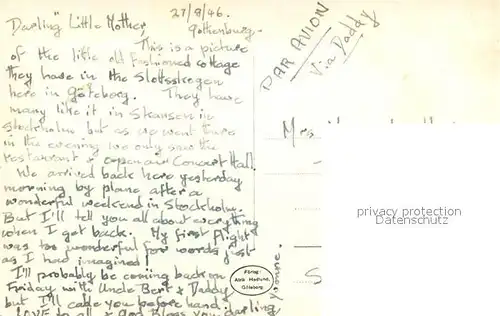 27/8/46.
Darling Little Mother,
Gothenburg.
This is a picture
of the little old fashioned cottage
they have in the Slottsskogen
here in Göteborg. They have
many like it in Skansen in
Stockholm but as we went there
in the evening we only saw the
restaurant & open air Concert Hall.
We arrived back here yesterday
morning by plane after a
wonderful weekend in Stockholm.
But I'll tell you all about everything
when I get back. My first flight
was too wonderful for words just
as I had imagined!
I'll probably be coming back on
Friday with Uncle Bert & Daddy
but I'll cable you before hand.
LOVE to all & God Bless you darling
PAR AVION
Via Daddy
Mrs
privacy protection
Datenschutz
S
Förlag:
Göteborg